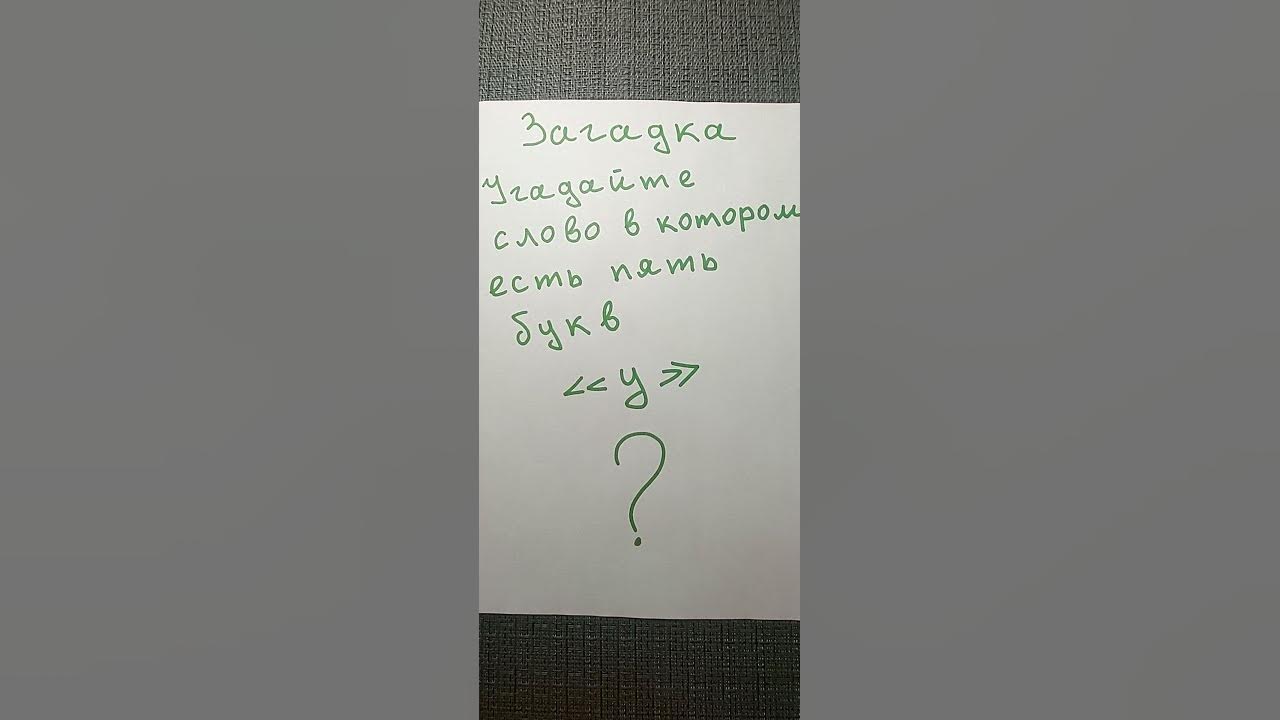 Загадка
Угадайте
слово в котором
есть пять
букв
«у»
?